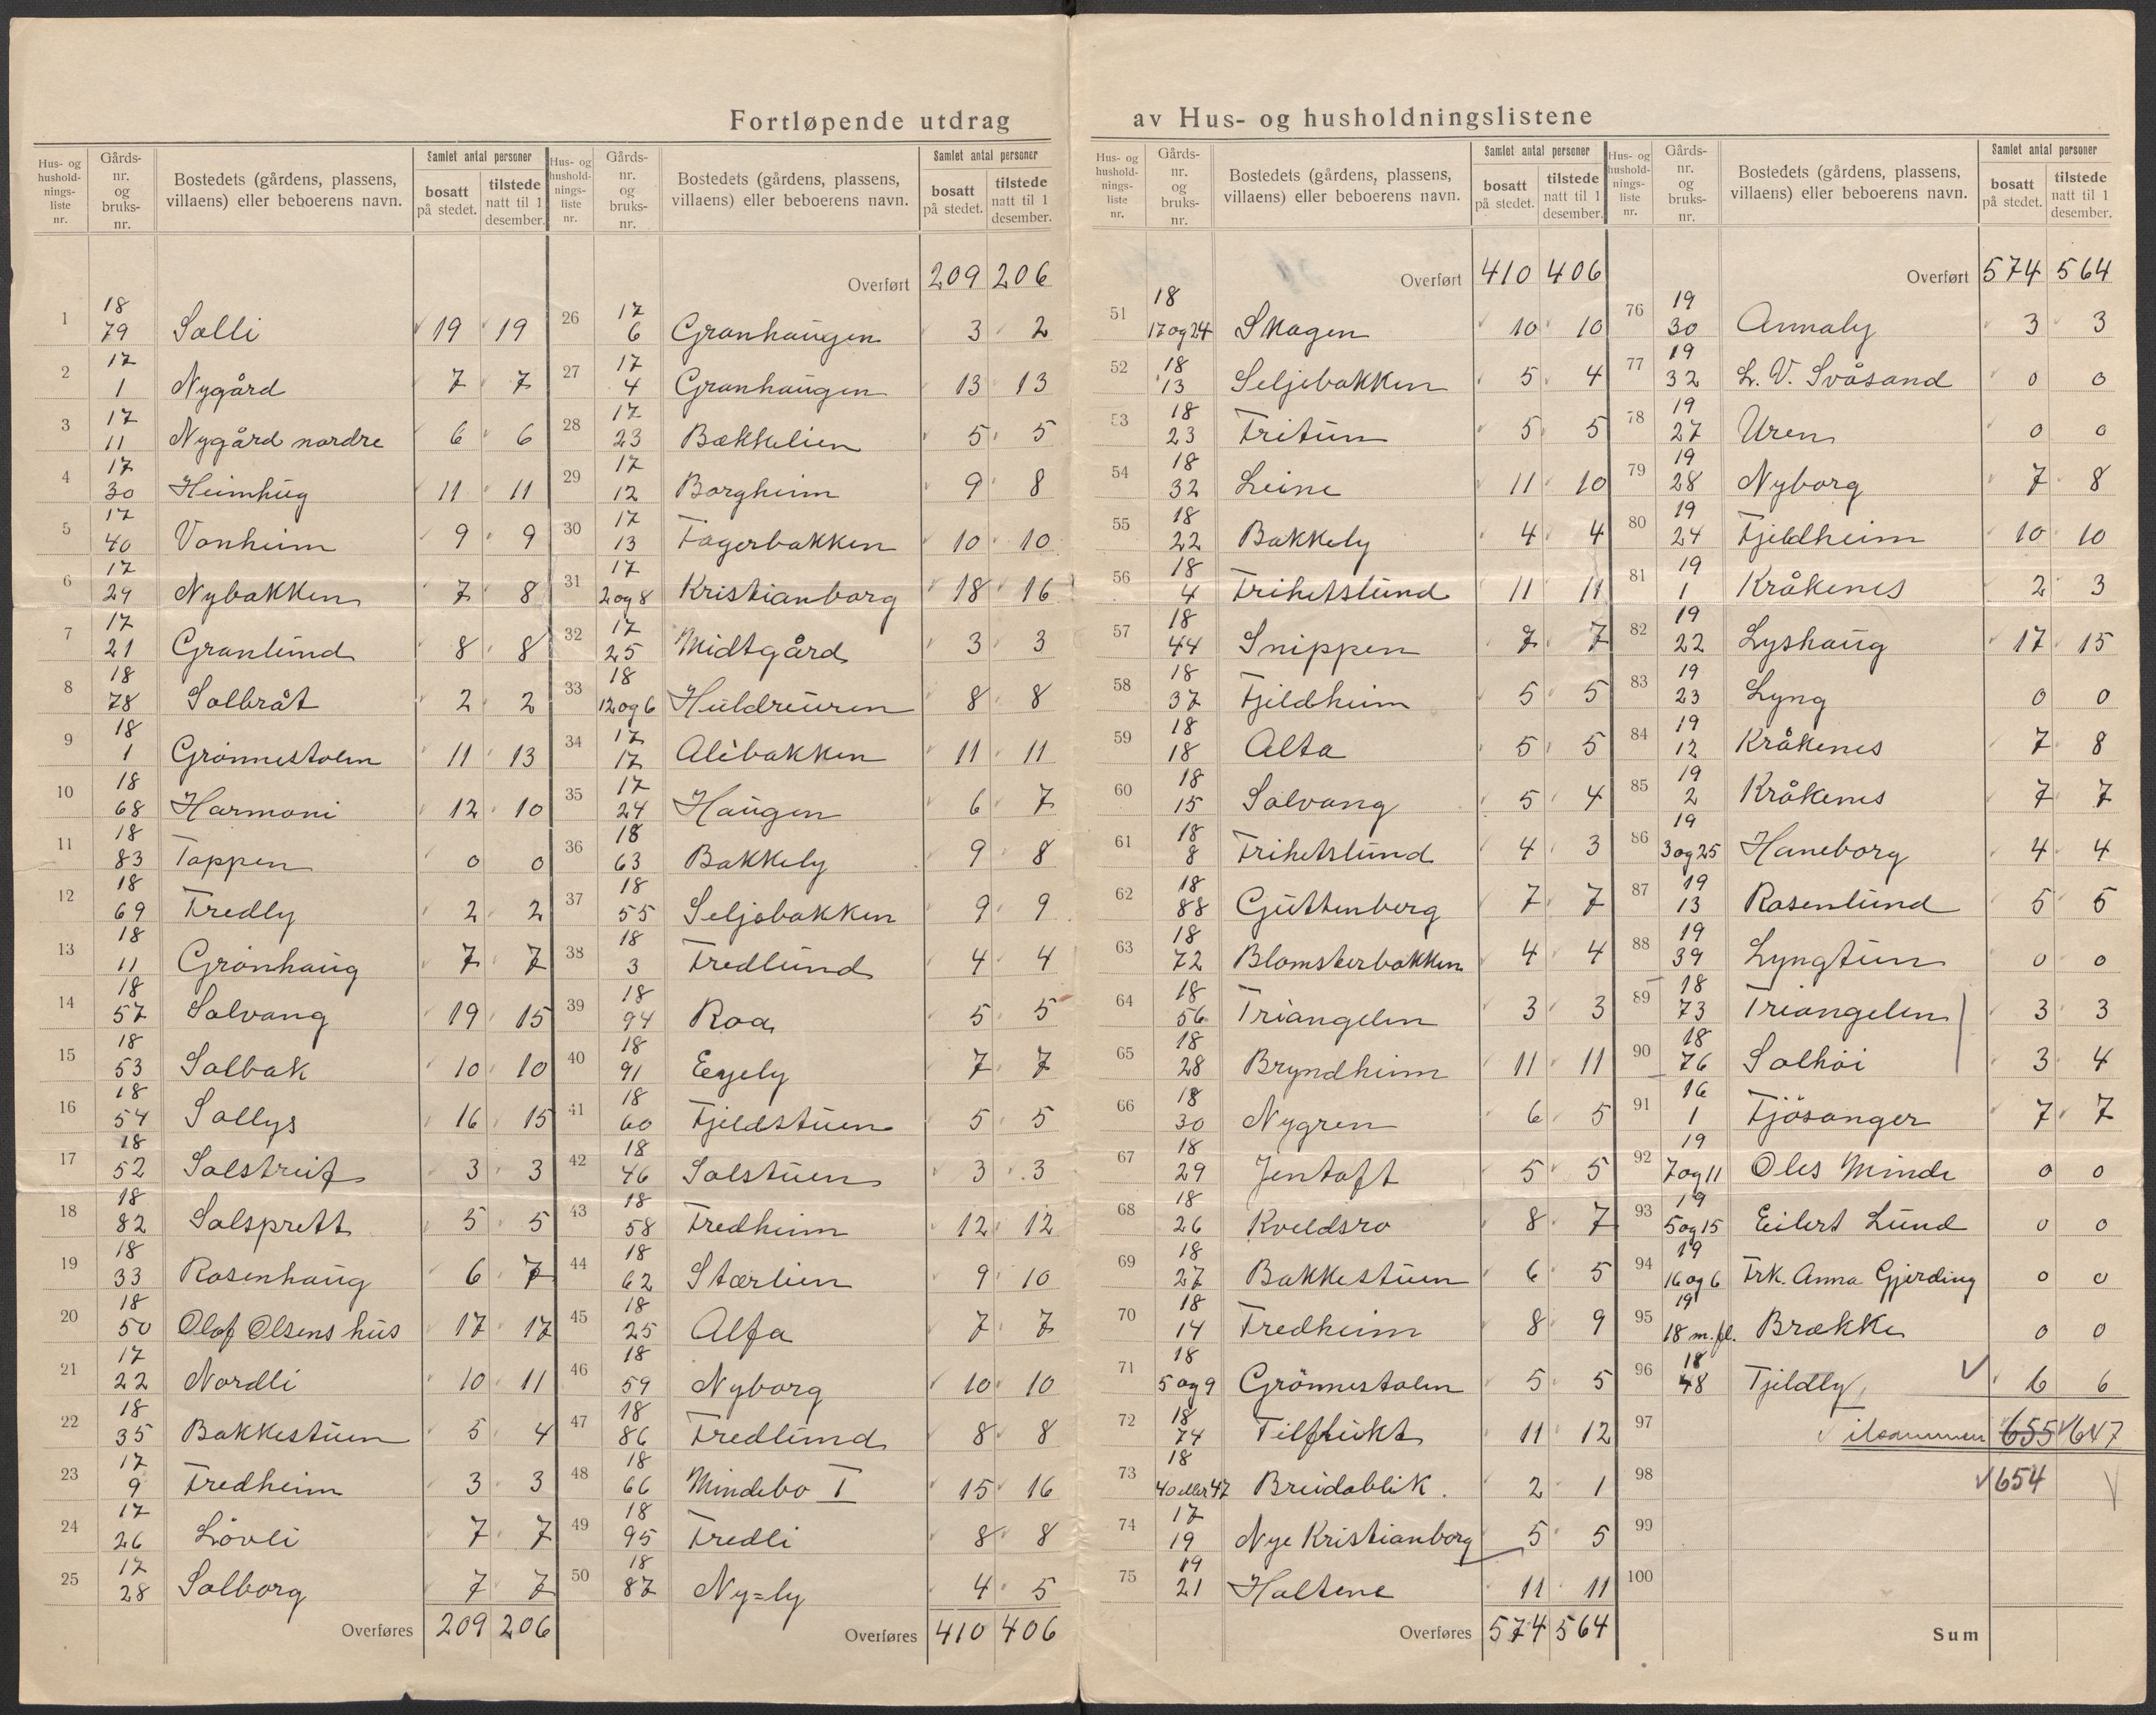 Fortløpende utdrag av Hus- og husholdningslistene
Hus- og husholdnings-liste nr. Gårds-nr. og bruks-nr. Bostedets (gårdens, plassens, villaens) eller beboerens navn. Samlet antal personer bosatt på stedet. tilstede natt til 1 desember.
1 18 79 Solli 19 19
2 17 1 Nygård 7 7
3 17 11 Nygård nordre 6 6
4 17 30 Heimhug 11 11
5 17 40 Vonheim 9 9
6 17 29 Nybakken 7 8
7 17 21 Granlund 8 8
8 18 78 Solbråt 2 2
9 18 1 Grønnestølen 11 13
10 18 68 Harmoni 12 10
11 18 83 Toppen 0 0
12 18 69 Fredly 2 2
13 18 11 Grønhaug 7 7
14 18 57 Solvang 19 15
15 18 53 Solbak 10 10
16 18 54 Sollys 16 15
17 18 52 Solstreif 3 3
18 18 82 Solsprett 5 5
19 18 33 Rosenhaug 6 7
20 18 50 Olaf Olsens hus 17 17
21 17 22 Nordli 10 11
22 18 35 Bakkestuen 5 4
23 17 9 Fredheim 3 3
24 17 26 Løvli 7 7
25 17 28 Solborg 7 7
Overføres 209 206
Hus- og husholdnings-liste nr. Gårds-nr. og bruks-nr. Bostedets (gårdens, plassens, villaens) eller beboerens navn. Samlet antal personer bosatt på stedet. tilstede natt til 1 desember.
Overført 209 206
26 17 6 Granhaugen 3 2
27 17 4 Granhaugen 13 13
28 17 23 Bækkelien 5 5
29 17 12 Borgheim 9 8
30 17 13 Fagerbakken 10 10
31 17 2 og 8 Kristianborg 18 16
32 17 25 Midtgård 3 3
33 18 12 og 6 Huldreuren 8 8
34 17 17 Alèbakken 11 11
35 17 24 Haugen 6 7
36 18 63 Bakkely 9 8
37 18 55 Seljebakken 9 9
38 18 3 Fredlund 4 4
39 18 94 Roa 5 5
40 18 91 Eegely 7 7
41 18 60 Fjeldstuen 5 5
42 18 46 Solstuen 3 3
43 18 58 Fredheim 12 12
44 18 62 Stærlien 9 10
45 18 25 Alfa 7 7
46 18 59 Nyborg 10 10
47 18 86 Fredlund 8 8
48 18 66 Mindebo I 15 16
49 18 95 Fredli 8 8
50 18 87 Ny=ly 4 5
Overføres 410 406
Hus- og husholdnings-liste nr. Gårds-nr. og bruks-nr. Bostedets (gårdens, plassens, villaens) eller beboerens navn. Samlet antal personer bosatt på stedet. tilstede natt til 1 desember.
Overført 410 406
51 18 17 og 24 Skogen 10 10
52 18 13 Seljebakken 5 4
53 18 23 Fritun 5 5
54 18 32 Leine 11 10
55 18 22 Bakkely 4 4
56 18 4 Frihetslund 11 11
57 18 44 Snippen 7 7
58 18 37 Fjeldheim 5 5
59 18 18 Alta 5 5
60 18 15 Solvang 5 4
61 18 8 Frihetslund 4 3
62 18 88 Guttenberg 7 7
63 18 72 Blomsterbakken 4 4
64 18 56 Triangelen 3 3
65 18 28 Bryndheim 11 11
66 18 30 Nygren 6 5
67 18 29 Jentoft 5 5
68 18 26 Kveldsro 8 7
69 18 27 Bakkestuen 6 5
70 18 14 Fredheim 8 9
71 18 5 og 9 Grønnestølen 5 5
72 18 74 Tilflukt 11 12
73 18 40 eller 47 Breidablik. 2 1
74 17 19 Nye Kristianborg 5 5
75 19 21 Holtene 11 11
Overføres 574 564
Hus- og husholdnings-liste nr. Gårds-nr. og bruks-nr. Bostedets (gårdens, plassens, villaens) eller beboerens navn. Samlet antal personer bosatt på stedet. tilstede natt til 1 desember.
Overført 574 564
76 19 30 Annaly 3 3
77 19 32 L. V. Svåsand 0 0
78 19 27 Uren 0 0
79 19 28 Nyborg 7 8
80 19 24 Fjeldheim 10 10
81 19 1 Kråkenes 2 3
82 19 22 Lyshaug 17 15
83 19 23 Lyng 0 0
84 19 12 Kråkenes 7 8
85 19 2 Kråkenes 7 7
86 19 3 og 25 Haneborg 4 4
87 19 13 Rosenlund 5 5
88 19 39 Lyngtun 0 0
89 18 73 Triangelen 3 3
90 18 76 Solhøi 3 4
91 16 1 Fjøsanger 7 7
92 19 7 og 11 Oles Minde 0 0
93 19 5 og 15 Eilert Lund 0 0
94 19 16 og 6 Frk. Anna Gjerding 0 0
95 19 18 m.fl. Brække 0 0
96 18 48 Fjeldly 6 6
97 Tilsammen 655 647
98 654
99
100
Sum